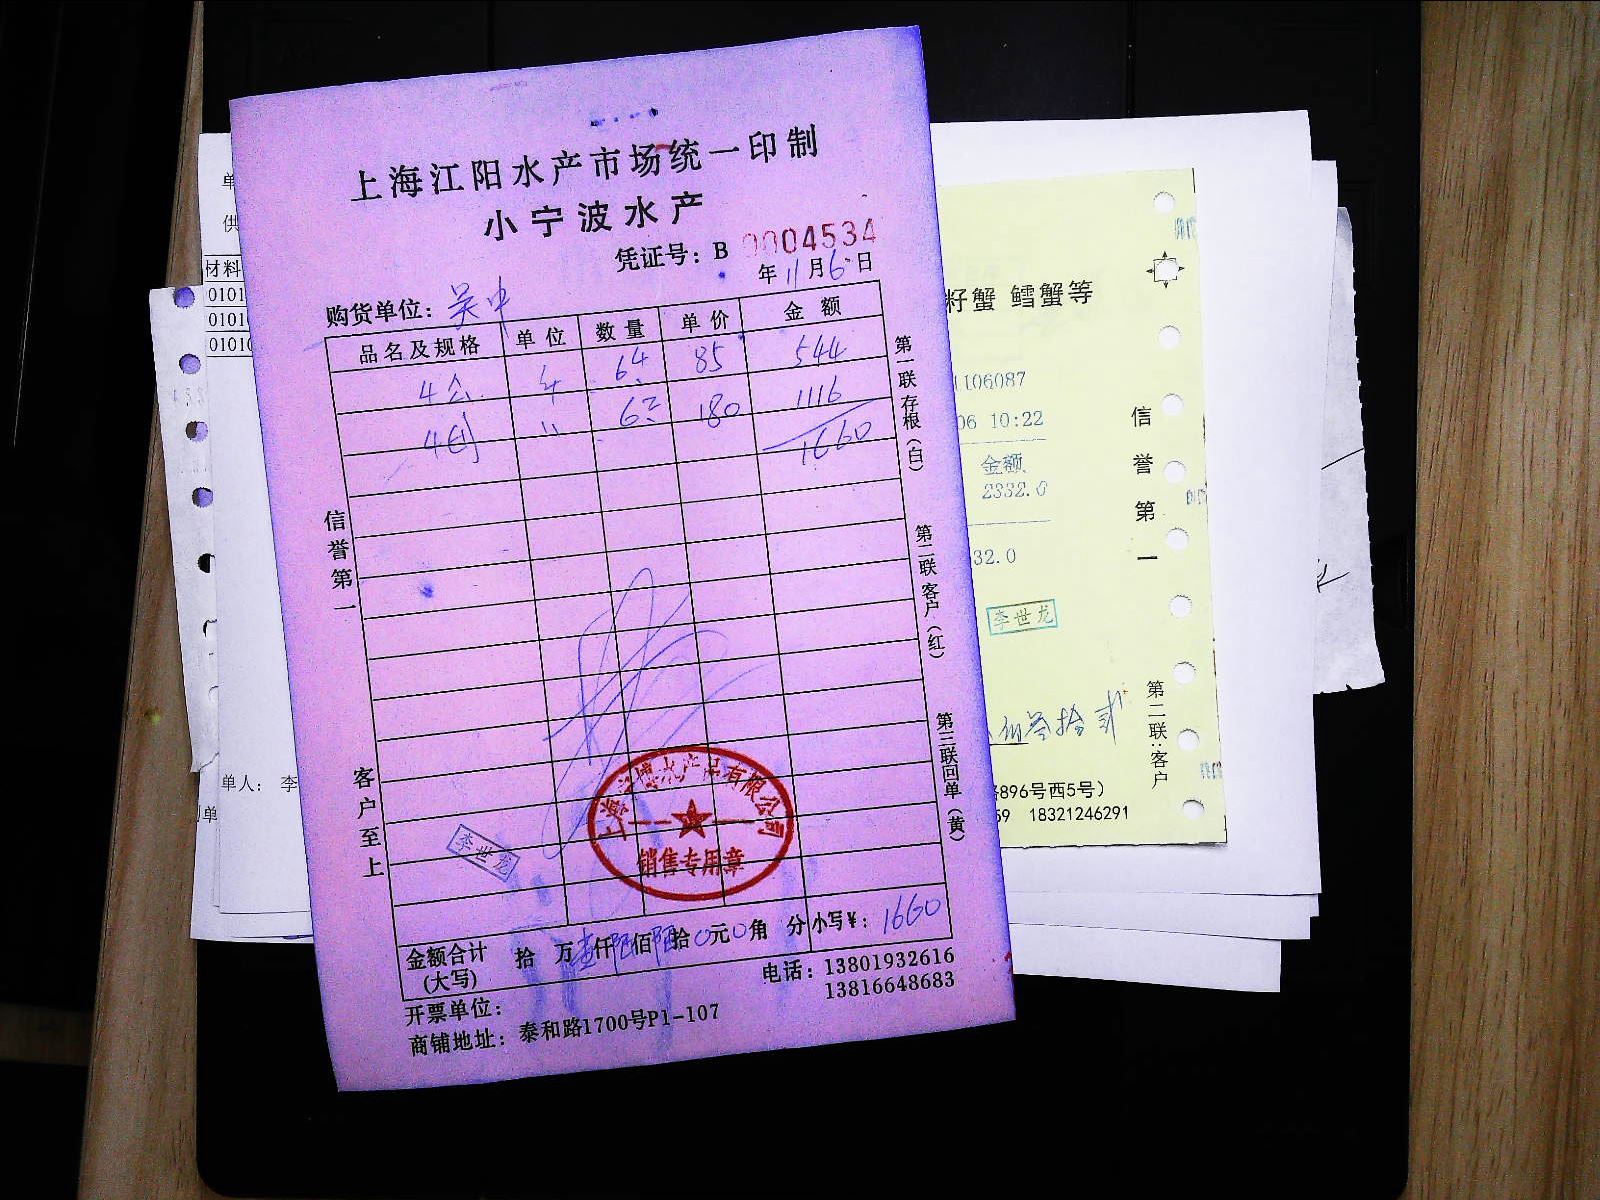 上海江阳水产市场统一印制
小宁波水产
凭证号：B 0004534
年11月6日
购货单位：吴中
品名及规格 单位 数量 单价 金额
4公 64 85 544
4母 〃 62 180 1116
1660
信誉第一
客户至上
第一联存根（白）
第二联客户（红）
第三联回单（黄）
李世龙
销售专用章
金额合计 拾万壹仟陆佰陆拾0元0角分 小写¥：1660
(大写)
电话：13801932616
13816648683
开票单位：
商铺地址：泰和路1700号P1-107
单
供
材料
0101
0101
0101
单人： 李
单
籽蟹 鳕蟹等
1106087
06 10:22
金额
2332.0
32.0
信誉第一
李世龙
佰叁拾贰
第二联：客户
896号西5号）
59 18321246291